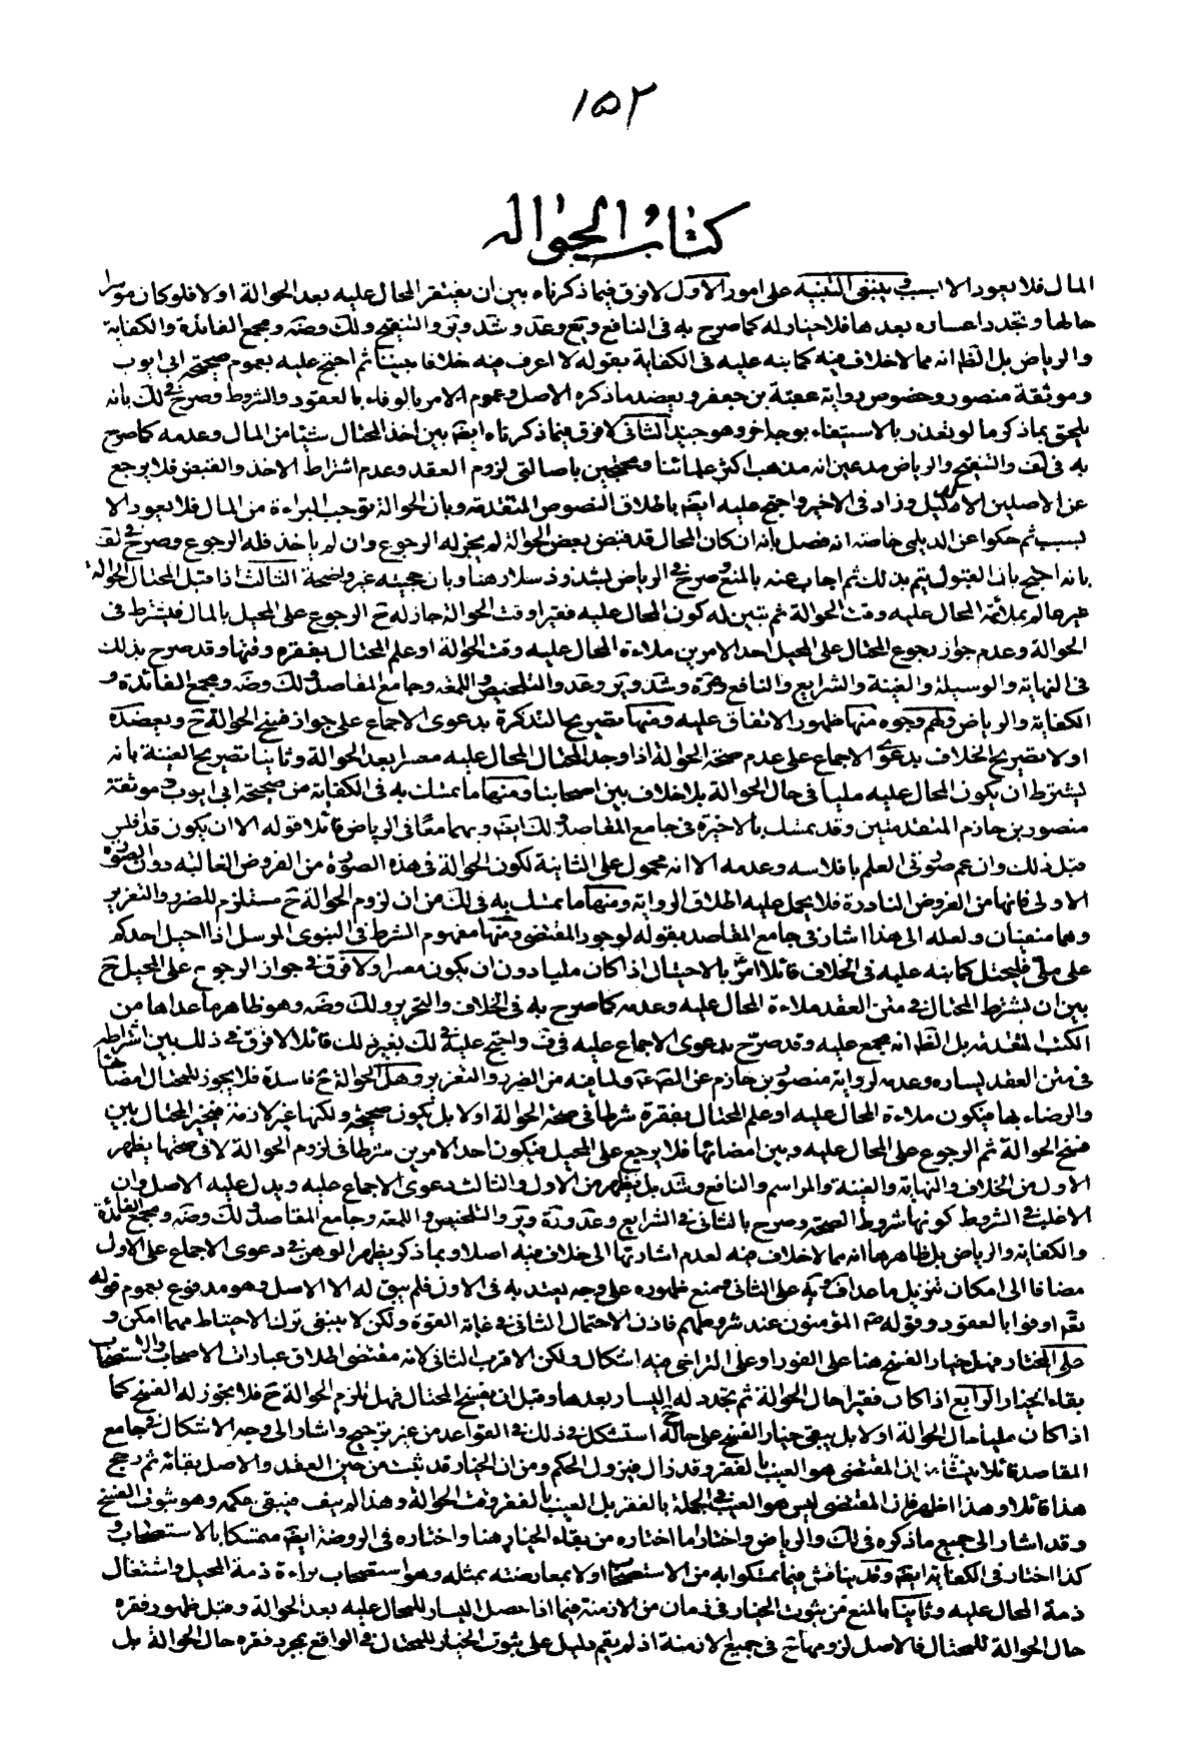 ١٥٢
كتاب الحواله
المال فلا يعود الا بسبب وينبغى التنبيه على امور الاول لا فرق فيما ذكرناه بين ان يفتقر المحال عليه بعد الحوالة او لا فلو كان موسرا
حالها وتجدد اعساره بعدها فلا خيار له كما صرح به فى النافع ويع وعد وشد وير والتنقيح ولك وضه ومجمع الفائدة والكفاية
والرياض بل الظ انه مما لا خلاف فيه كما نبه عليه فى الكفاية بقوله لا اعرف فيه خلافا بيننا ثم احتج عليه بعموم صحيحتى ابى ايوب
وموثقة منصور وخصوص رواية عقبة بن جعفر ويعضد ما ذكره الاصل وعموم الامر بالوفاء بالعقود والشروط وصرح فى لك بانه
يلحق بما ذكر ما لو تعذر بالاستيفاء بوجه اخر وهو جيد الثانى لا فرق فيما ذكرناه ايضا بين اخذ المحتال شيئا من المال وعدمه كما صرح
به فى لف والتنقيح والرياض مدعين انه مذهب اكثر علمائنا ومحتجين باصالتى لزوم العقد وعدم اشتراط الاخذ والقبض فلا يرجع
عن الاصلين الا بدليل وزاد فى الاخير واحتج عليه ايضا باطلاق النصوص المتقدمة وبان الحوالة توجب البراءة من المال فلا يعود الا
لسبب ثم حكوا عن الديلمى خاصة انه فصل بانه ان كان المحال قد قبض بعض الحوالة لم يجز له الرجوع وان لم ياخذ فله الرجوع وصرح فى لف
بانه احتج بان القبول يتم بذلك ثم اجاب عنه بالمنع وصرح فى الرياض بشذوذ سلار هنا وبان حجيته غير واضحة الثالث اذا قبل المحتال الحوالة
غير عالم بملائة المحال عليه وقت الحوالة ثم تبين له كون المحال عليه فقيرا وقت الحوالة جاز له ح الرجوع على المحيل بالمال فيشترط فى
الحوالة وعدم جواز رجوع المحتال على المحيل احد الامرين ملاءة المحال عليه وقت الحوالة او علم المحتال بفقره وقتها وقد صرح بذلك
فى النهاية والوسيلة والغنية والشرايع والنافع وكره وشد وير وعد والتلخيص واللمعه وجامع المقاصد ولك وضه ومجمع الفائدة و
الكفاية والرياض ولهم وجوه منها ظهور الاتفاق عليه ومنها تصريح التذكرة بدعوى الاجماع على جواز فسخ الحوالة ح ويعضده
اولا تصريح الخلاف بدعوى الاجماع على عدم صحة الحوالة اذا وجد المحتال المحال عليه معسرا بعد الحوالة وثانيا تصريح الغنية بانه
يشترط ان يكون المحال عليه مليا فى حال الحوالة بلا خلاف بين اصحابنا ومنها ما تمسك به فى الكفاية من صحيحة ابى ايوب وموثقة
منصور بن حازم المتقدمتين وقد تمسك بالاخيرة فى جامع المقاصد ولك ايضا وبهما معًا فى الرياض قائلا قوله الا ان يكون قد افلس
قبل ذلك وان عم صورتى العلم بافلاسه وعدمه الا انه محمول على الثانية لكون الحوالة فى هذه الصورة من الفروض الغالبة دون الصورة
الاولى فانها من الفروض النادرة فلا يحمل عليه اطلاق الرواية ومنها ما تمسك به فى لك من ان لزوم الحوالة ح مستلزم للضرر والتغرير
وهما منفيان ولعله الى هذا اشار فى جامع المقاصد بقوله لوجود المقتضى ومنها مفهوم الشرط فى النبوى المرسل اذا احيل احدكم
على ملى فليحتل كما نبه عليه فى الخلاف قائلا امره بالاحتيال اذا كان مليا دون ان يكون معسرا ولا فرق فى جواز الرجوع على المحيل ح
بين ان يشترط المحتال فى متن العقد ملاءة المحال عليه وعدمه كما صرح به فى الخلاف والتحرير ولك وضه وهو ظاهر ما عداها من
الكتب المتقدمة بل الظ انه مجمع عليه وقد صرح بدعوى الاجماع عليه فى ف واحتج عليه فى لك بغير ذلك قائلا لا فرق فى ذلك بين اشتراطه
فى متن العقد يساره وعدمه لرواية منصور بن حازم عن الصادق ع ولما فيه من الضرر والتغرير وهل الحوالة ح فاسدة فلا يجوز للمحتال امضائها
والرضاء بها فيكون ملاءة المحال عليه او علم المحتال بفقره شرطا فى صحة الحوالة او لا بل تكون صحيحة ولكنها غير لازمة فيتخير المحتال بين
فسخ الحوالة ثم الرجوع على المحال عليه وبين امضائها فلا يرجع على المحيل فيكون احد الامرين شرطا فى لزوم الحوالة لا فى صحتها يظهر
الاول من الخلاف والنهاية والغنية والمراسم والنافع وشد بل يظهر من الاول والثالث دعوى الاجماع عليه ويدل عليه الاصل وان
الاغلب فى الشروط كونها شروط الصحة وصرح بالثانى فى الشرايع وعد وده وير والتلخيص واللمعة وجامع المقاصد ولك وضه ومجمع الفائدة
والكفاية والرياض بل ظاهرها انه مما لا خلاف فيه لعدم اشارتها الى خلاف فيه اصلا وبما ذكر يظهر الوهن فى دعوى الاجماع على الاول
مضافا الى امكان تنزيل ما عدا ف ويه على الثانى فيمنع ظهوره على وجه يعتد به فى الاول فلم يبق له الا الاصل وهو مدفوع بعموم قوله
تعم اوفوا بالعقود وقوله ص المؤمنون عند شروطهم فاذن الاحتمال الثانى فى غاية القوة ولكن لا ينبغى ترك الاحتياط مهما امكن و
على المختار فهل خيار الفسخ هنا على الفور او على التراخى فيه اشكال ولكن الاقرب الثانى لانه مقتضى اطلاق عبارات الاصحاب والاستصحاب
بقاء الخيار الرابع اذا كان فقيرا حال الحوالة ثم تجدد له اليسار بعدها وقبل ان يفسخ المحتال فهل تلزم الحوالة ح فلا يجوز له الفسخ كما
اذا كان مليا حال الحوالة او لا بل يبقى خيار الفسخ على حاله استشكل فى ذلك فى القواعد من غير ترجيح واشار الى وجه الاشكال فى جامع
المقاصد قائلا ينشأ من ان المقتضى هو العيب بالفقر وقد زال فيزول الحكم ومن ان الخيار قد ثبت من حين العقد والاصل بقائه ثم رجح
هذا قائلا وهذا اظهر فان المقتضى ليس هو العيب فى الجملة بالفقر بل العيب بالفقر وقت الحوالة وهذا لم ينتف فيبقى حكمه وهو ثبوت الفسخ
وقد اشار الى جميع ما ذكره فى لك والرياض واختارا ما اختاره من بقاء الخيار هنا واختاره فى الروضة ايضا متمسكا بالاستصحاب و
كذا اختار فى الكفاية ايضا وقد يناقش فيما تمسكوا به من الاستصحاب اولا بمعارضته بمثله وهو استصحاب براءة ذمة المحيل واشتغال
ذمة المحال عليه وثانيا بالمنع من ثبوت الخيار فى زمان من الازمنة فيما اذا حصل اليسار للمحال عليه بعد الحوالة وقبل ظهور فقره
حال الحوالة للمحتال فالاصل لزومها ح فى جميع الازمنة اذ لم يقم دليل على ثبوت الخيار للمحتال فى الواقع بمجرد فقره حال الحوالة بل